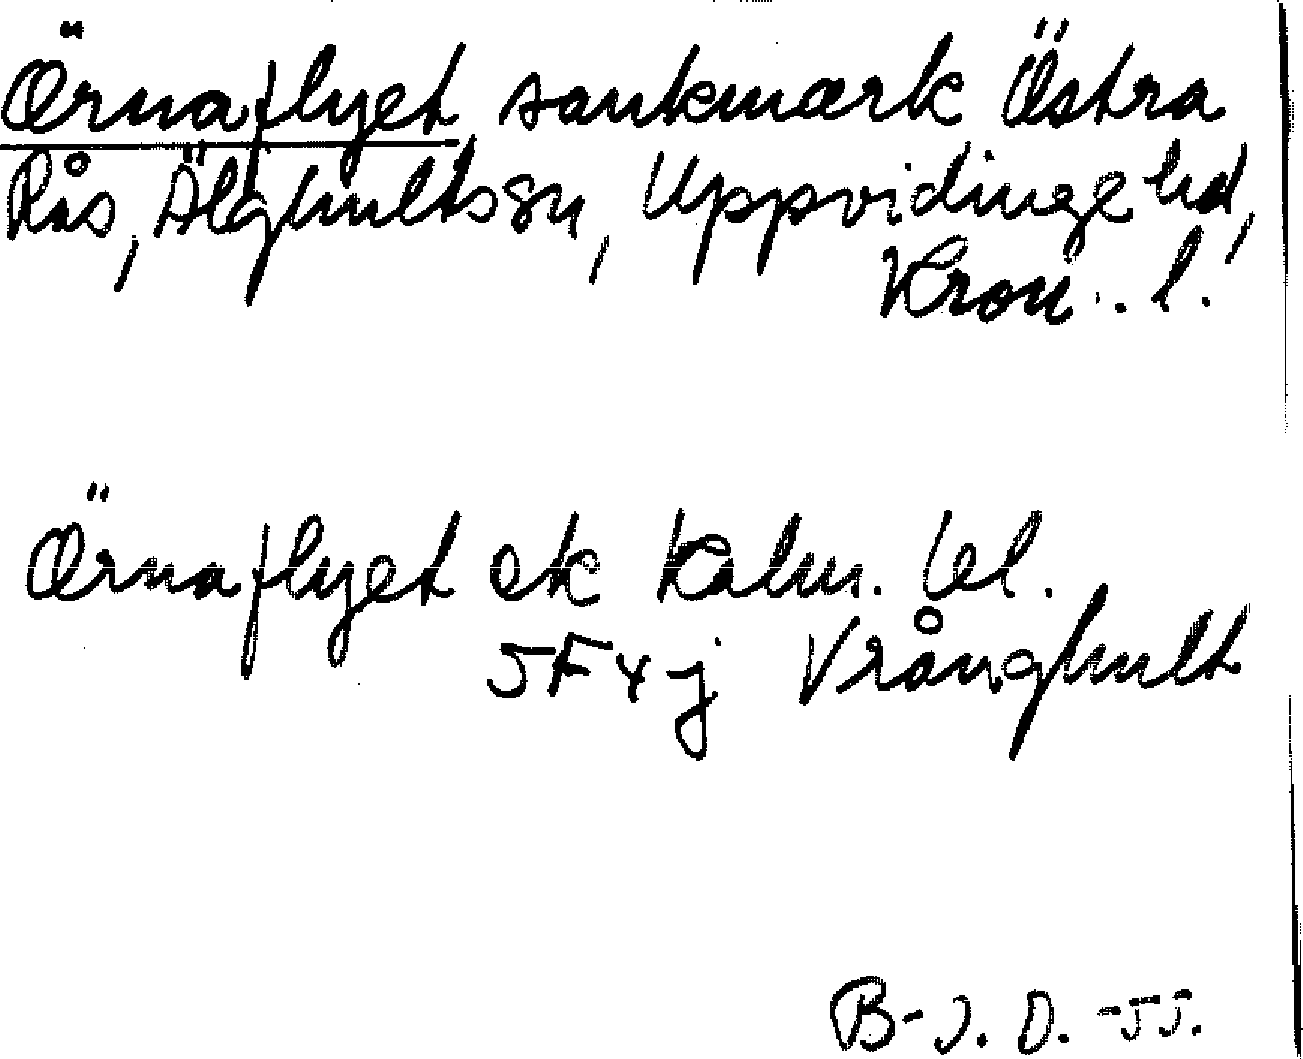 Örnaflyet sankmark Östra
Rås, Älghults sn, Uppvidinge hd,
Kron.. l.
Örnaflyet ek Kalm. bl.
5F4j Vrånghult
B-J. D. -55.